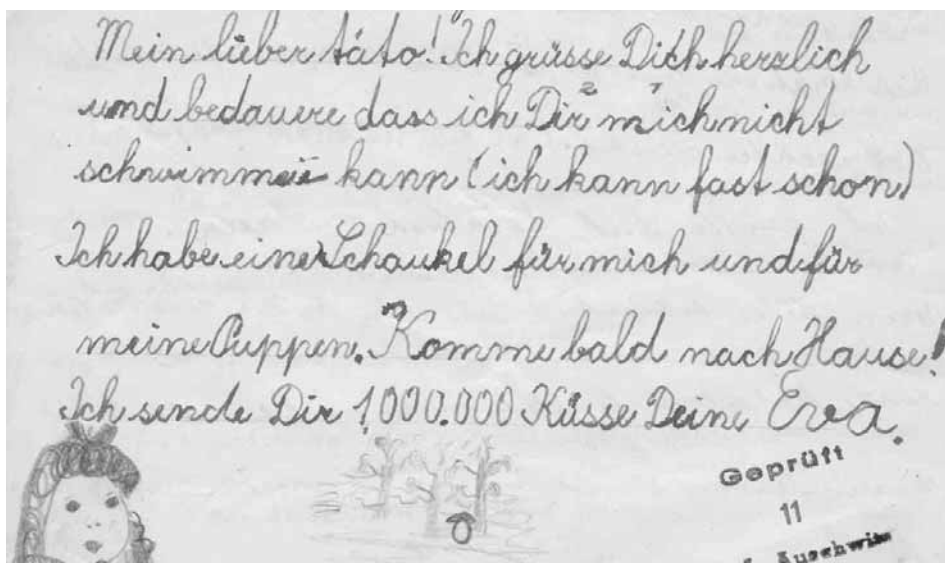 Mein lieber táto! Ich grüsse Dich herzlich
und bedauere dass ich Dir mich nicht
schwimmen kann (ich kann fast schon)
Ich habe eine Schaukel für mich und für
meine Puppen. Komme bald nach Hause!
Ich sende Dir 1,000.000 Küsse Deine Eva.
Geprüft
11
Auschwitz